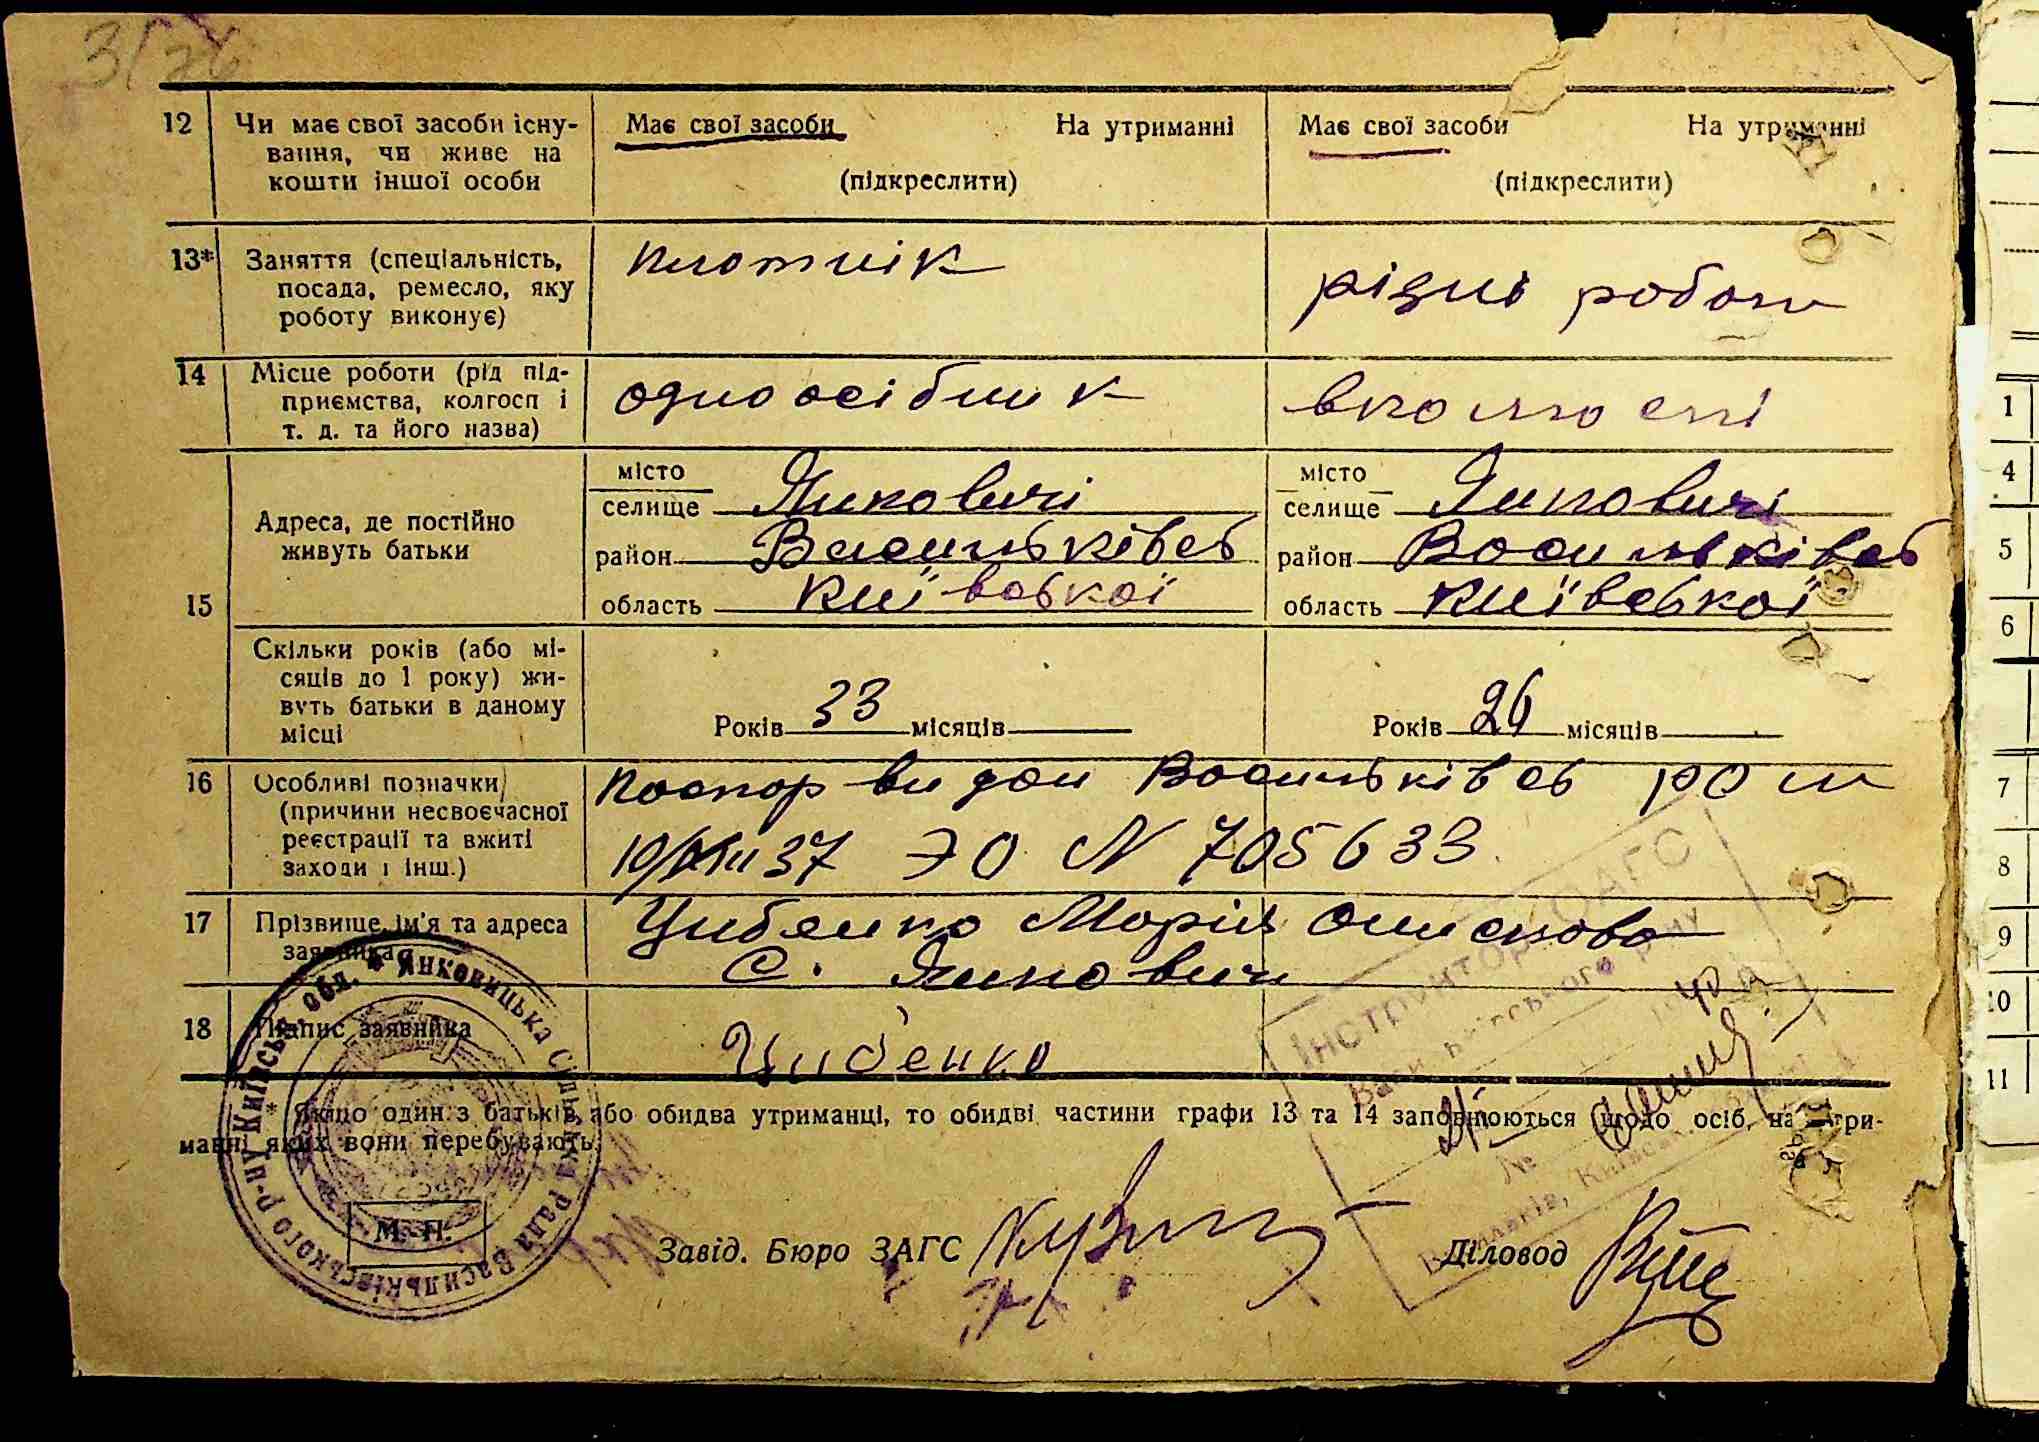 12 Чи має свої засоби існу- Має свої засоби На утриманні Має свої засоби На утриманні
вання, чи живе на
кошти іншої особи (підкреслити) (підкреслити)
13* Заняття (спеціальність, плотнік
посада, ремесло, яку різні роботи
роботу виконує)
14 Місце роботи (рід під-
приємства, колгосп і одноосібник
т. д. та його назва)
місто Янковичі місто Янковичі
селище селище
Адреса, де постійно
живуть батьки район Васильківсь район Васильківсь
15 область Київської область Київської
Скільки років (або мі-
сяців до 1 року) жи-
вуть батьки в даному Років 33 місяців Років 26 місяців
місці
16 Особливі позначки Паспор видан Васильківсь
(причини несвоєчасної
реєстрації та вжиті 37 ЭО N 705633
заходи і інш.)
17 Прізвище, ім'я та адреса Цибенко Марія
заявника с. Янковичи
18 Підпис заявника Цибенко
* Якщо один з батьків або обидва утриманці, то обидві частини графи 13 та 14 заповнюються щодо осіб, на утри-
манні яких вони перебувають.
М. П.
Завід. Бюро ЗАГС Діловод
Янковицька Сільська Рада Васильківського р-ну Київськ. обл.
Інструктор ЗАГС
Васильківського р-ну
№
1
4
5
6
7
8
9
10
11